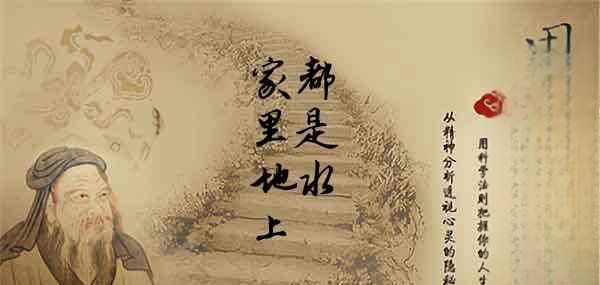 家里地上
都是水
从精神分析透视心灵的隐秘
用科学法则把握你的人生